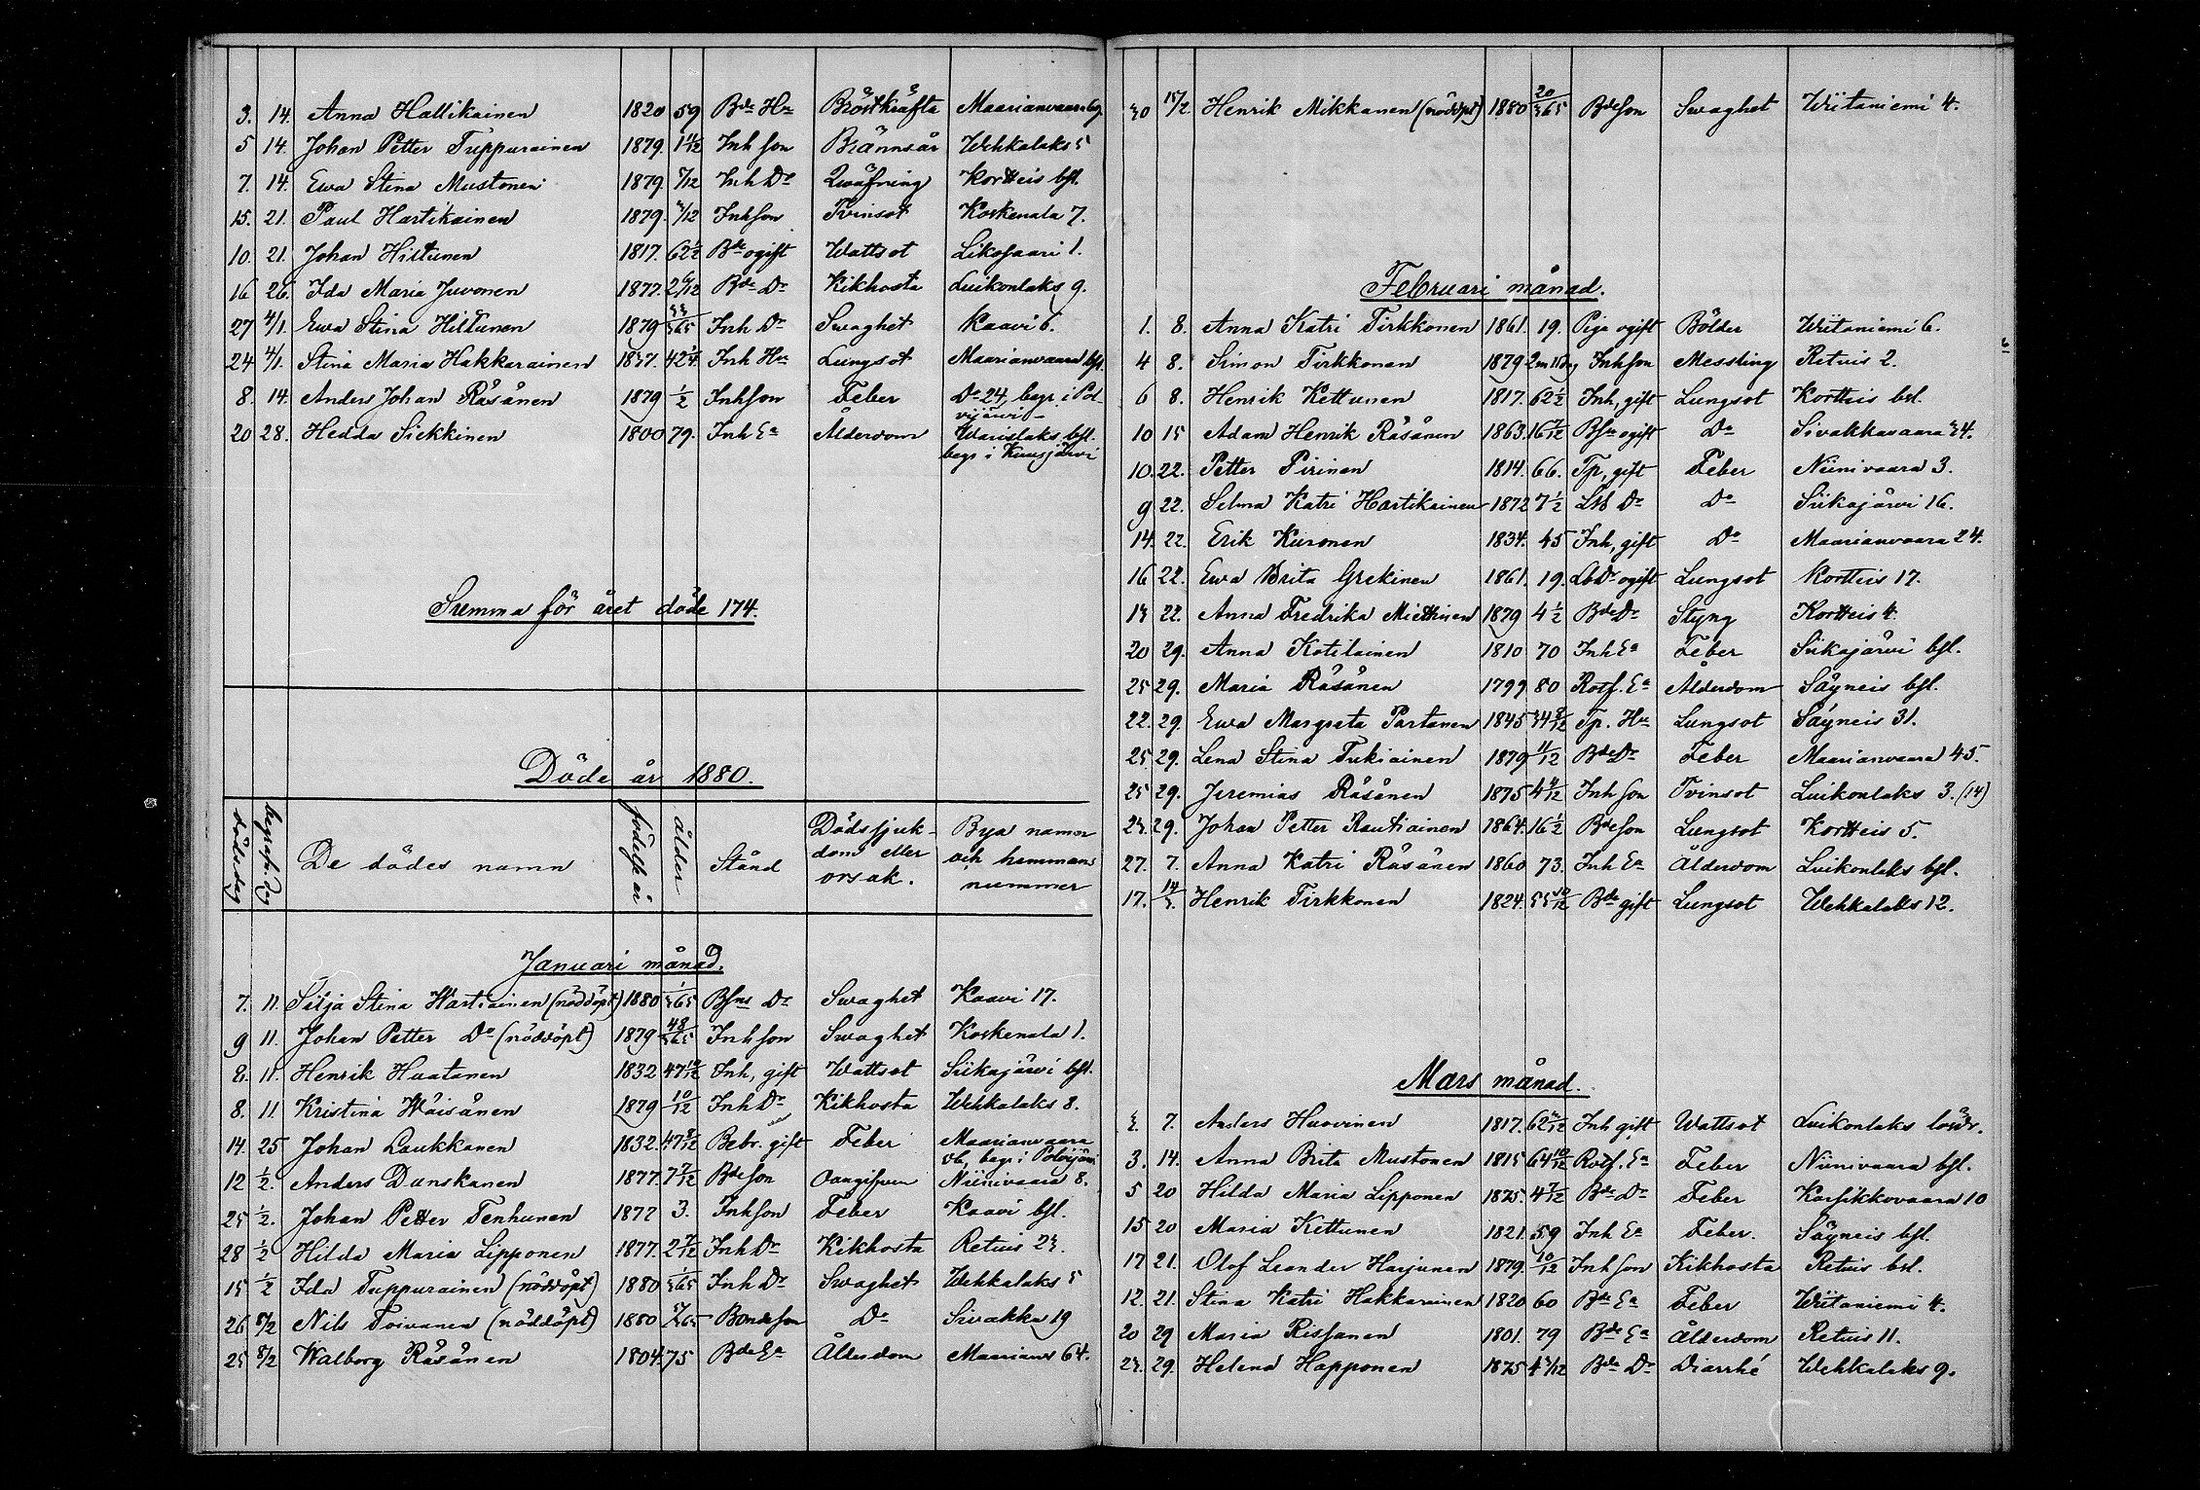 3. 14. Anna Hallikainen 1820 59 Bde Hu Bröstkräfta Maarianvaara 69.
5 14. Johan Petter Tuppurainen 1879. 1 11/12 Inh son Brännsår Wehkalaks 5
7. 14. Ewa Stina Mustonen 1879 Inh Dr Qwäfning Kortteis bfl.
15. 21. Paul Hartikainen 1879. Inhson Tvinsot Koskenala 7.
10. 21. Johan Hiltunen 1817. 62 1/2 Bde ogift Wattsot Likosaari 1.
16 26. Ida Maria Juvonen 1877. 2 6/12 Bde Dr Kikhosta Luikonlaks 9.
27 4/1. Ewa Stina Hiltunen 1879 33/365 Inh Dr Swaghet Kaavi 6.
24 4/1. Stina Maria Hakkarainen 1837. 42 1/4 Inh Hu Lungsot Maarianvaara bfl.
8. 14. Anders Johan Räsänen 1879 1/2 Inhson Feber Do 24, begr. i Pol-
vijärvi-
20 28. Hedda Siekkinen 1800 79. Inh Ea Ålderdom Warislaks bfl.
begr i Kuusjärvi
Summa för året döde 174.
Döde år 1880.
dödsdag begrafn.dag De dödes namn födelseår ålder Stånd Dödssjuk-
dom eller
orsak. Bya namn
och hemmans
nummer
Januari månad.
7. 11. Silja Stina Wartiainen (nöddöpt) 1880 1/365 Bfns Dr Swaghet Kaavi 17.
9 11. Johan Petter Do (nöddöpt) 1879 48/365 Inhson Swaghet Koskenala 1.
8. 11. Henrik Haatanen 1832 47 10/12 Inh, gift Wattsot Siikajärvi bfl.
8. 11 Kristina Wäisänen 1879 10/12 Inh Dr Kikhosta Wehkalaks 8.
14. 25 Johan Laukkanen 1832. 47 8/12 Bebr. gift Feber Maarianvaara
begr i Polvijärvi
12 1/2. Anders Danskanen 1877. Bdeson Niinivaara 8.
25 1/2. Johan Petter Tenhunen 1877 3. Inhson Feber Kaavi bfl.
28 1/2 Hilda Maria Lipponen 1877. 2 7/12 Inh Dr Kikhosta Retuis 23.
15 1/2 Ida Tuppurainen (nöddöpt) 1880 1/365 Inh Dr Swaghet Wehkalaks 5
26 8/2 Nils Toivanen (nöddöpt) 1880 Bondeson Do Sivakka 19
25 8/2 Walborg Räsänen 1804. 75 Bde Ea Ålderdom Maarianv 64.
30 15/2. Henrik Mikkanen (nöddöpt) 1880 20/365 Bdeson Swaghet Wiitaniemi 4.
Februari månad.
1. 8. Anna Katri Tirkkonen 1861. 19. Piga ogift Bölder Wiitaniemi 6.
4 8. Simon Tirkkonen 1879 Inhson Messling Retuis 2.
6 8. Henrik Kettunen 1817. 62 1/2 Inh, gift Lungsot Kortteis bsl.
10 15 Adam Henrik Räsänen 1863. Bfn ogift Do Sivakkavaara 34.
10. 22. Petter Pirinen 1814. 66. Tp, gift Feber Niinivaara 3.
9 22. Selma Katri Hartikainen 1872 7 1/2 Dr Do Siikajärvi 16.
14. 22. Erik Kuronen 1834. 45 Inh, gift Do Maarianvaara 24.
16 22. Ewa Brita Grekinen 1861. 19. Lb Dr ogift Lungsot Kortteis 17.
13 22. Anna Fredrika Miettinen 1879 4 1/2 Bde Dr Styng Kortteis 4
20 29. Anna Kotilainen 1810 70 Inh Ea Feber Siikajärvi bfl.
25 29. Maria Räsänen 1799 80 Rotf. Ea Ålderdom Säyneis bfl.
22. 29. Ewa Margreta Partanen 1845 34 8/12 Tp. Hu Lungsot Säyneis 31.
25. 29. Lena Stina Tukiainen 1879 11/12 Bde Dr Feber Maarianvaara 45.
25 29. Jeremias Räsänen 1875 Inh son Tvinsot Luikonlaks 3. (14)
23. 29. Johan Petter Rautiainen 1864. 16 1/2 Bdeson Lungsot Kortteis 5.
27. 7. Anna Katri Räsänen 1860 73. Inh Ea Ålderdom Luikonlaks bfl.
17. 14/3. Henrik Tirkkonen 1824. 55 10/12 Bde gift Lungsot Wehkalaks 12.
Mars månad.
3. 7. Anders Huovinen 1817. Inh gift Wattsot Luikonlaks
3. 14. Anna Brita Mustonen 1815 64 10/12 Rotf. Ea Feber Niinivaara bfl.
5 20 Hilda Maria Lipponen 1875. 4 7/12 Bde Dr Feber Karsikkovaara 10
15 20 Maria Kettunen 1821. 59 Inh Ea Feber. Säyneis bfl.
17 21. Olof Leander Harjunen 1879. 10/12 Inh son Kikhosta Retuis bsl.
12. 21. Stina Katri Hakkarainen 1820 60 Bde Ea Feber Wiitaniemi 4.
20 29 Maria Rissanen 1801. 79 Bde Ea Ålderdom Retuis 11.
23. 29. Helena Happonen 1875 4 3/12 Bde Dr Diarrhé Wehkalaks 9.